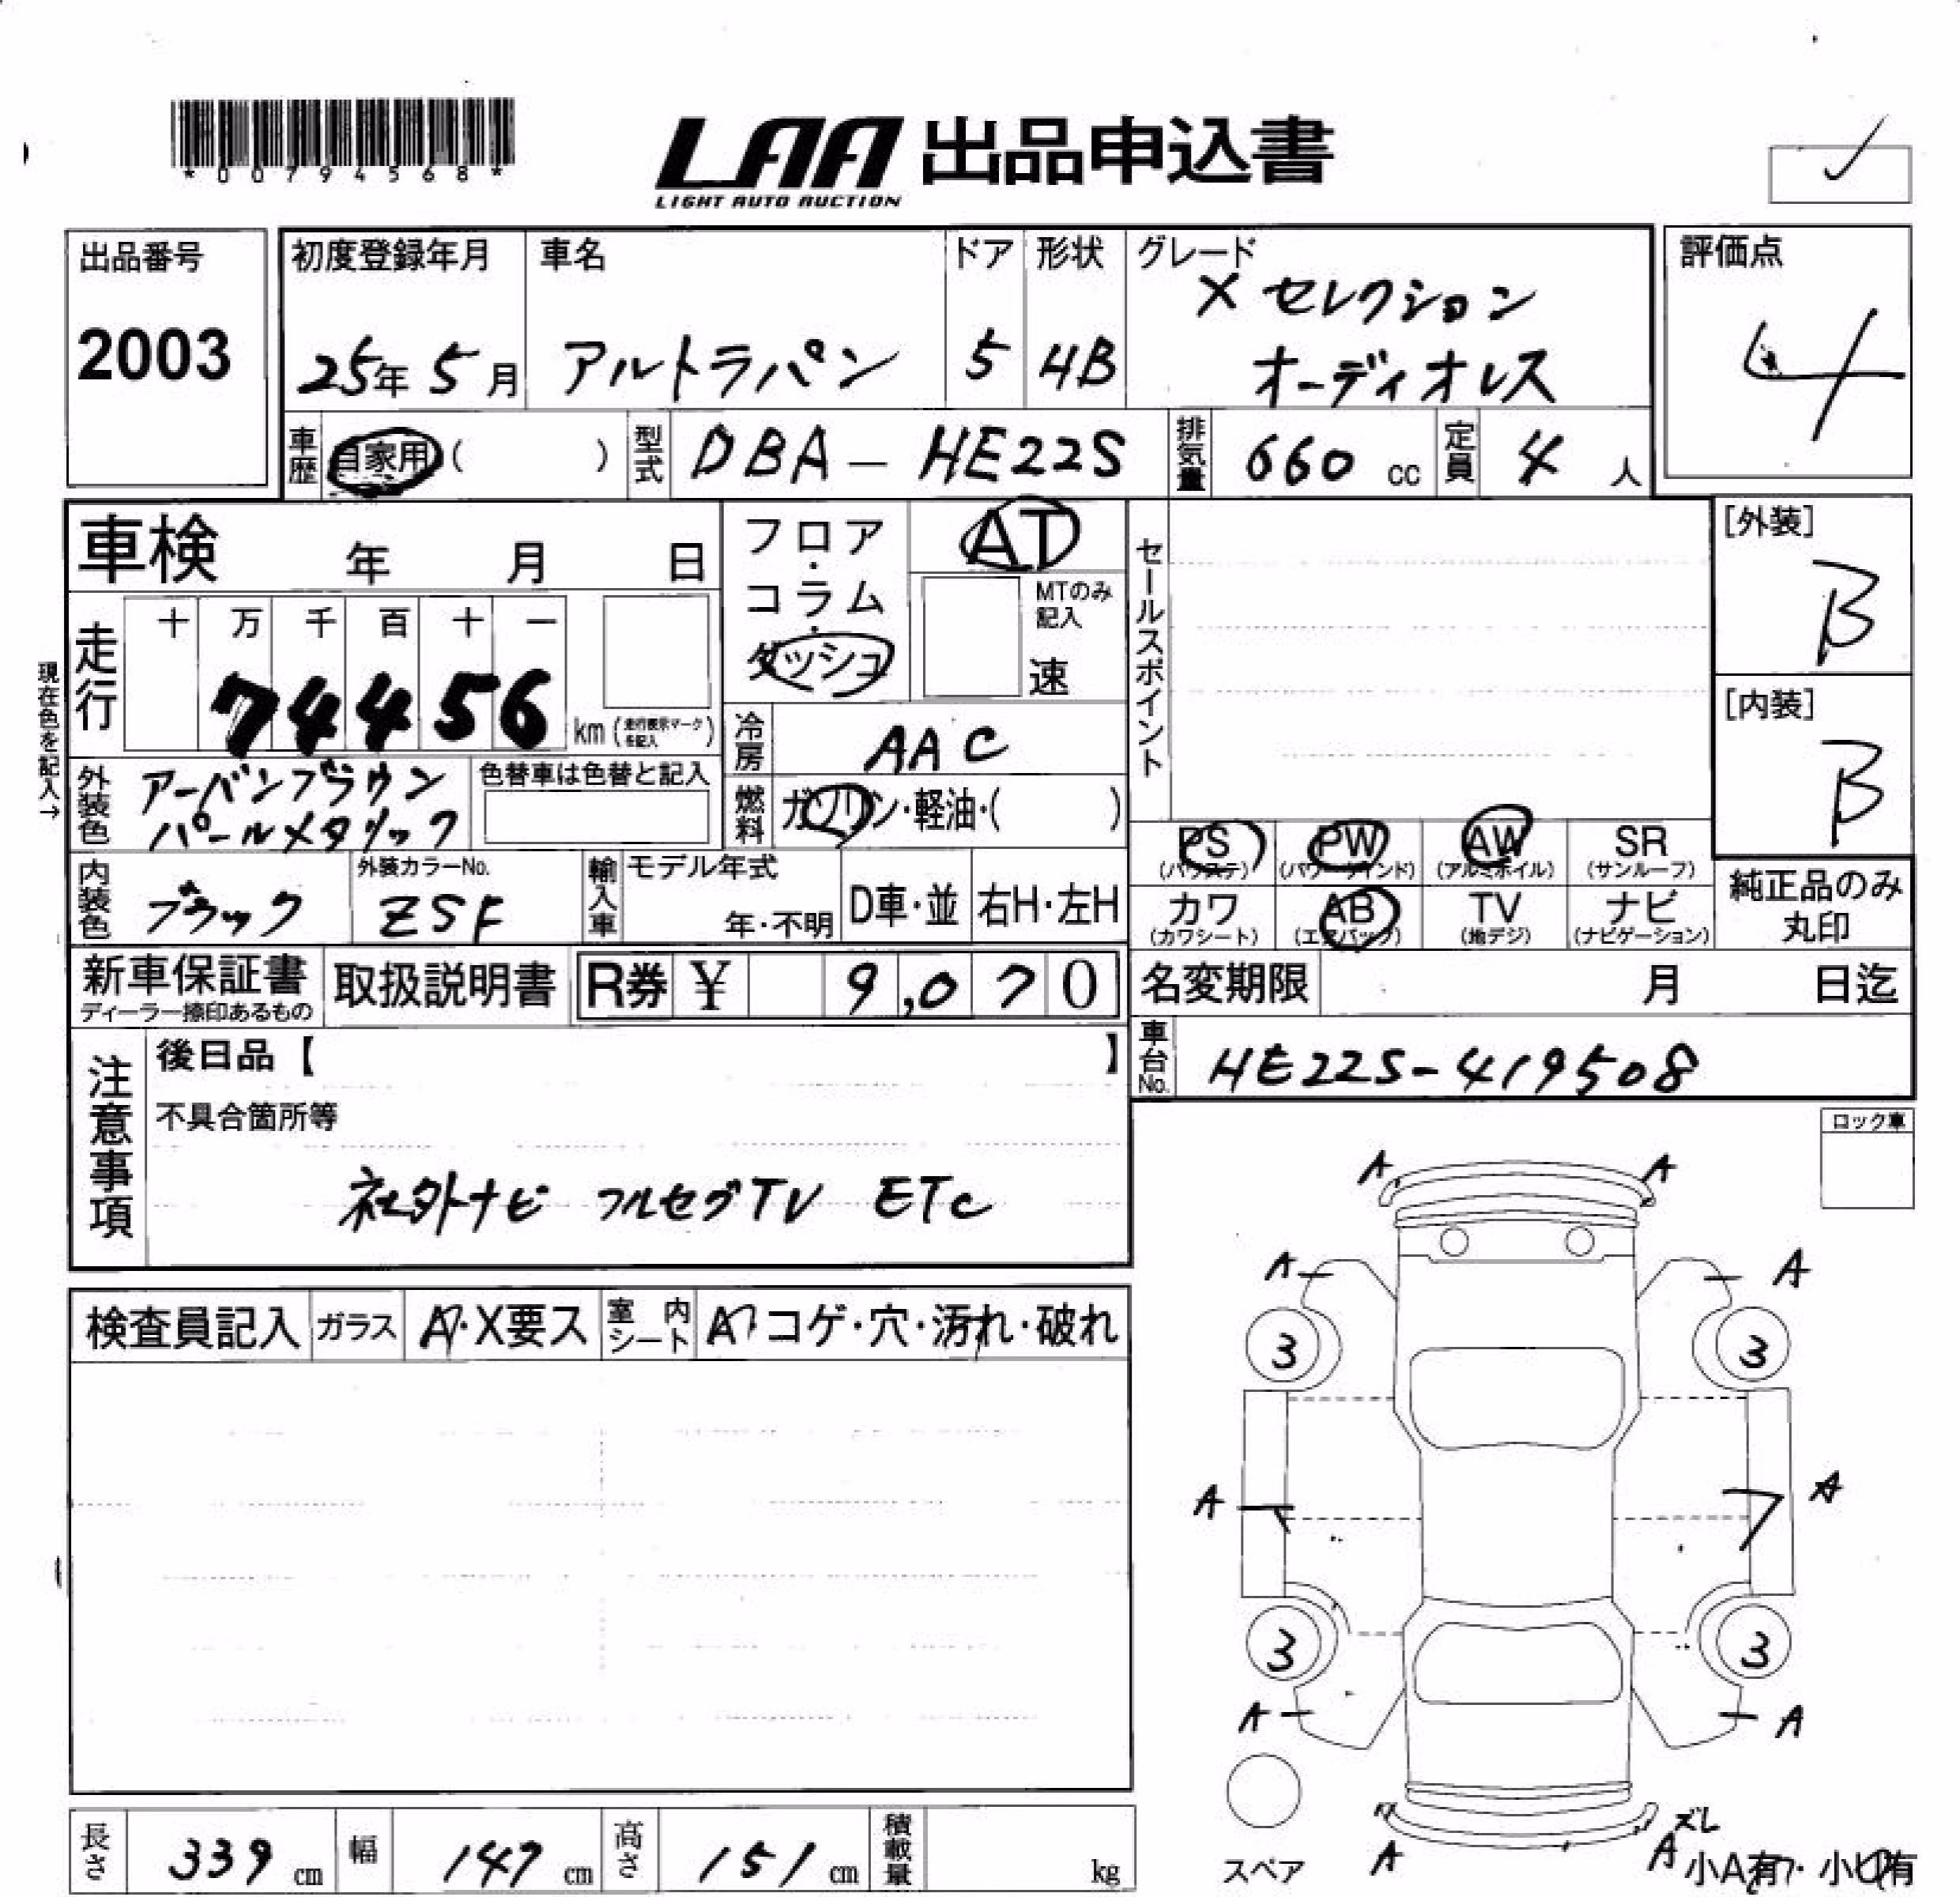 *00794568*
LAA 出品申込書
LIGHT AUTO AUCTION
出品番号
2003
初度登録年月
25年 5月
車名
アルトラパン
ドア
5
形状
4B
グレード
X セレクション
オーディオレス
評価点
4
車歴 自家用( )
型式 DBA-HE22S
排気量 660 cc
定員 4 人
車検 年 月 日
走行
十 万 千 百 十 一
74456 km (走行表示マークを記入)
現在色を記入→
外装色 アーバンブラウン
パールメタリック
色替車は色替と記入
内装色 ブラック
外装カラーNo.
ZSF
輸入車
モデル年式
年・不明
D車・並
右H・左H
フロア・
コラム・
ダッシュ
AT
MTのみ
記入
速
冷房 AAC
燃料 ガソリン・軽油・( )
セールスポイント
[外装]
B
[内装]
B
PS (パワステ)
PW (パワーウインド)
AW (アルミホイル)
SR (サンルーフ)
カワ (カワシート)
AB (エアバッグ)
TV (地デジ)
ナビ (ナビゲーション)
純正品のみ
丸印
新車保証書
ディーラー捺印あるもの
取扱説明書
R券 ¥ 9,070
名変期限 月 日迄
車台No. HE22S-419508
注意事項
後日品【 】
不具合箇所等
社外ナビ フルセグTV ETC
ロック車
検査員記入
ガラス
A・X要ス
室内シート
A コゲ・穴・汚れ・破れ
A A
A A
3 3
A A
3 3
A A
スペア
A A ズレ
小A有・小U有
長さ 339 cm
幅 147 cm
高さ 151 cm
積載量 kg